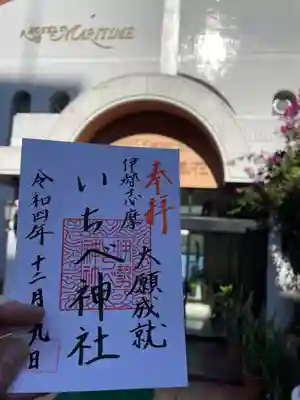 MARITIME
奉拝
大願成就
伊勢志摩
いちべ神社
令和四年十二月九日